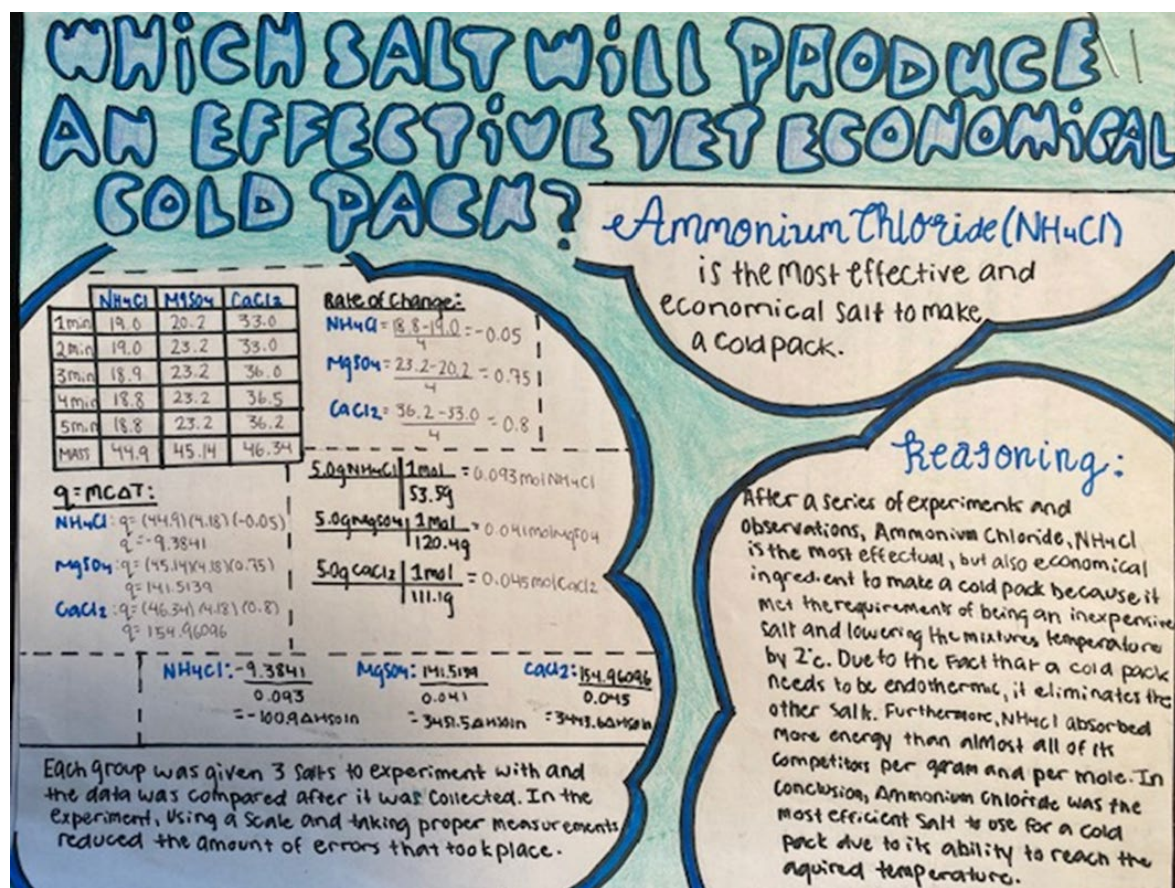 WHICH SALT WILL PRODUCE
AN EFFECTIVE YET ECONOMICAL
COLD PACK?
Ammonium Chloride (NH4Cl)
is the most effective and
economical salt to make
a cold pack.
NH4Cl MgSO4 CaCl2
1min 19.0 20.2 33.0
2min 19.0 23.2 33.0
3min 18.9 23.2 36.0
4min 18.8 23.2 36.5
5min 18.8 23.2 36.2
MASS 44.9 45.14 46.34
Rate of Change:
NH4Cl = 18.8-19.0 = -0.05
4
MgSO4 = 23.2-20.2 = 0.75
4
CaCl2 = 36.2-33.0 = 0.8
4
q=mCΔT:
NH4Cl: q= (44.9)(4.18)(-0.05)
q= -9.3841
MgSO4: q= (45.14)(4.18)(0.75)
q= 141.5139
CaCl2: q= (46.34)(4.18)(0.8)
q= 154.96096
5.0g NH4Cl 1mol = 0.093 mol NH4Cl
53.5g
5.0g MgSO4 1mol = 0.041 mol MgSO4
120.4g
5.0g CaCl2 1mol = 0.045 mol CaCl2
111.1g
NH4Cl: -9.3841 MgSO4: 141.5139 CaCl2: 154.96096
0.093 0.041 0.045
= -100.9 ΔHsoln = 3451.5 ΔHsoln = 3443.6 ΔHsoln
Each group was given 3 salts to experiment with and
the data was compared after it was collected. In the
experiment, using a scale and taking proper measurements
reduced the amount of errors that took place.
Reasoning:
After a series of experiments and
observations, Ammonium Chloride, NH4Cl
is the most effectual, but also economical
ingredient to make a cold pack because it
met the requirements of being an inexpensive
salt and lowering the mixtures temperature
by 2°c. Due to the fact that a cold pack
needs to be endothermic, it eliminates the
other salts. Furthermore, NH4Cl absorbed
more energy than almost all of its
competitors per gram and per mole. In
conclusion, Ammonium Chloride was the
most efficient salt to use for a cold
pack due to its ability to reach the
aquired temperature.